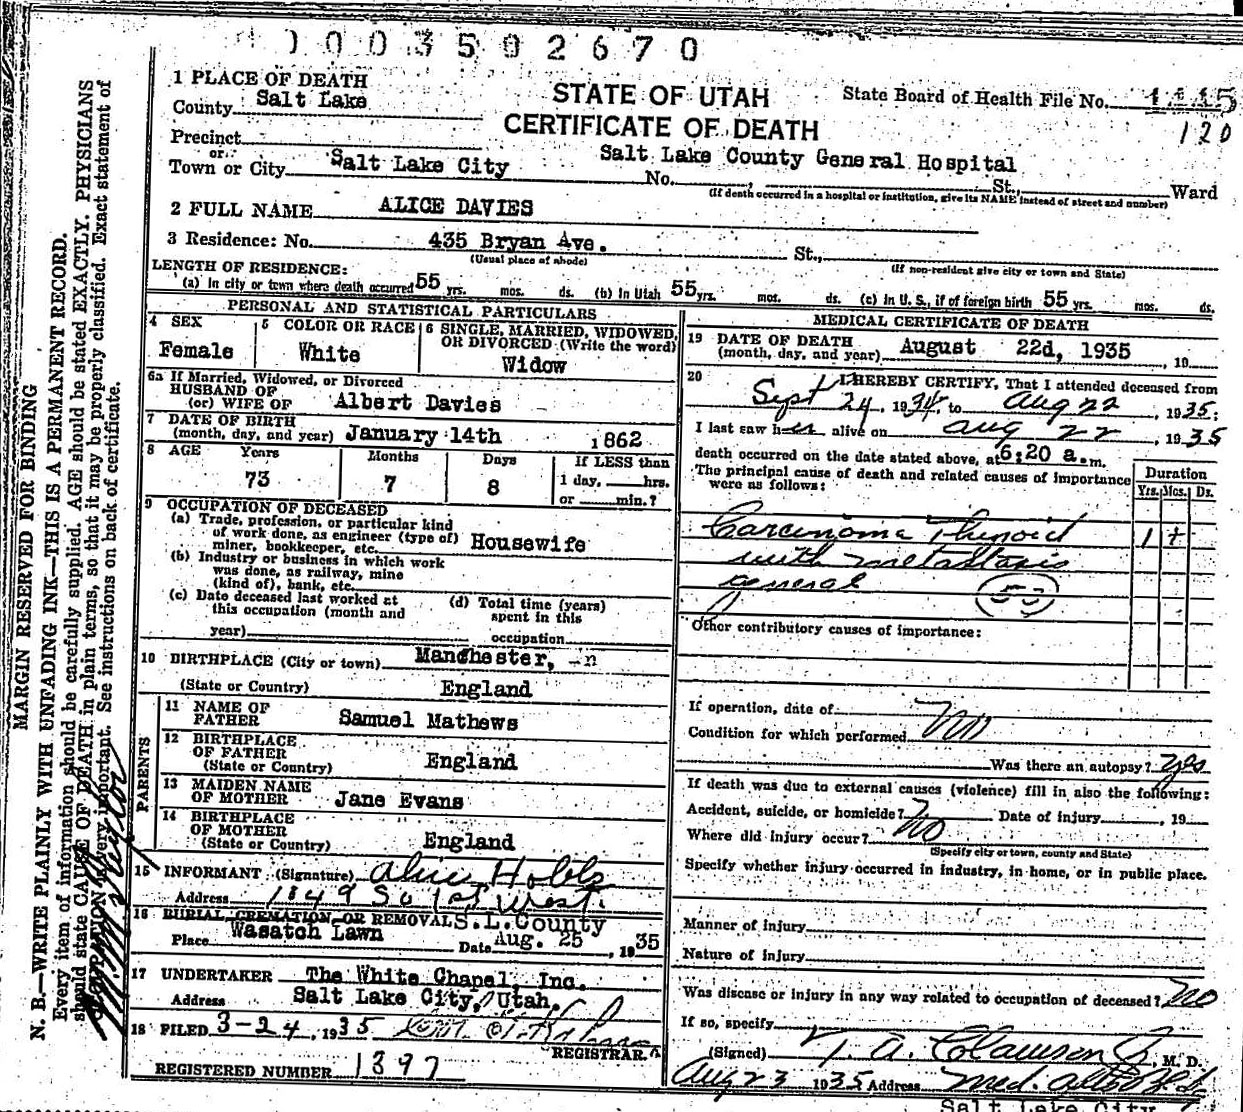 1003502670
1 PLACE OF DEATH
County Salt Lake
STATE OF UTAH
State Board of Health File No.
120
CERTIFICATE OF DEATH
Precinct
or
Town or City Salt Lake City No. Salt Lake County General Hospital St., Ward
(If death occurred in a hospital or institution, give its NAME instead of street and number)
2 FULL NAME ALICE DAVIES
3 Residence: No. 435 Bryan Ave. St.,
(Usual place of abode) (If non-resident give city or town and State)
LENGTH OF RESIDENCE:
(a) In city or town where death occurred 55 yrs. mos. ds. (b) In Utah 55 yrs. mos. ds. (c) In U. S., if of foreign birth 55 yrs. mos. ds.
PERSONAL AND STATISTICAL PARTICULARS
4 SEX
Female
5 COLOR OR RACE
White
6 SINGLE, MARRIED, WIDOWED,
OR DIVORCED (Write the word)
Widow
6a If Married, Widowed, or Divorced
HUSBAND OF
(or) WIFE OF Albert Davies
7 DATE OF BIRTH
(month, day, and year) January 14th 1862
8 AGE Years Months Days If LESS than
73 7 8 1 day, hrs.
or min.?
9 OCCUPATION OF DECEASED
(a) Trade, profession, or particular kind
of work done, as engineer (type of)
miner, bookkeeper, etc. Housewife
(b) Industry or business in which work
was done, as railway, mine
(kind of), bank, etc.
(c) Date deceased last worked at
this occupation (month and
year)
(d) Total time (years)
spent in this
occupation
10 BIRTHPLACE (City or town) Manchester,
(State or Country) England
PARENTS
11 NAME OF
FATHER Samuel Mathews
12 BIRTHPLACE
OF FATHER
(State or Country) England
13 MAIDEN NAME
OF MOTHER Jane Evans
14 BIRTHPLACE
OF MOTHER
(State or Country) England
15 INFORMANT (Signature) Alice Hobbs
Address 1849 So 1st West.
16 BURIAL, CREMATION, OR REMOVAL S.L. County
Place Wasatch Lawn Date Aug. 25, 1935
17 UNDERTAKER The White Chapel, Inc.
Address Salt Lake City, Utah.
18 FILED 3-24, 1935
REGISTRAR
REGISTERED NUMBER 1397
MEDICAL CERTIFICATE OF DEATH
19 DATE OF DEATH
(month, day, and year) August 22d, 1935, 19
20 I HEREBY CERTIFY, That I attended deceased from
Sept 24, 1934, to Aug 22, 1935;
I last saw her alive on Aug 22, 1935
death occurred on the date stated above, at 6:20 a.m.
The principal cause of death and related causes of importance
were as follows:
Duration
Yrs. Mos. Ds.
Carcinoma Thyroid 1 +
with metastasis
general
53
Other contributory causes of importance:
If operation, date of No
Condition for which performed
Was there an autopsy? yes
If death was due to external causes (violence) fill in also the following:
Accident, suicide, or homicide? No Date of injury, 19
Where did injury occur?
(Specify city or town, county and State)
Specify whether injury occurred in industry, in home, or in public place.
Manner of injury
Nature of injury
Was disease or injury in any way related to occupation of deceased? No
If so, specify
(Signed) T. A. Clawson Jr, M. D.
Aug 23 1935 Address Med.
Salt Lake City
MARGIN RESERVED FOR BINDING
N. B.—WRITE PLAINLY WITH UNFADING INK—THIS IS A PERMANENT RECORD.
Every item of information should be carefully supplied. AGE should be stated EXACTLY. PHYSICIANS
should state CAUSE OF DEATH in plain terms, so that it may be properly classified. Exact statement of
OCCUPATION is very important. See instructions on back of certificate.